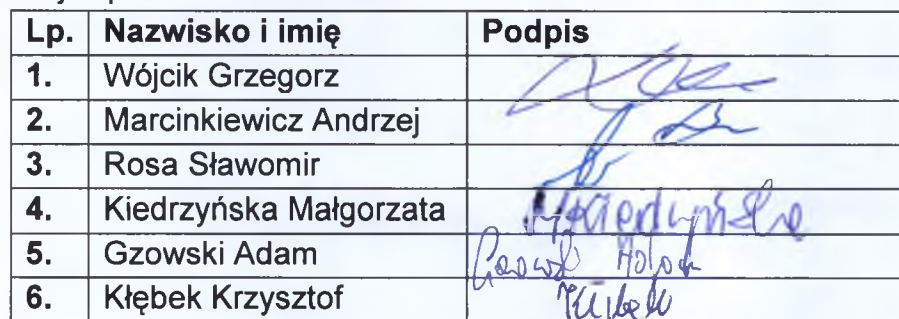 Lp. Nazwisko i imię Podpis
1. Wójcik Grzegorz
2. Marcinkiewicz Andrzej
3. Rosa Sławomir
4. Kiedrzyńska Małgorzata MKiedrzyńska
5. Gzowski Adam Gzowski Adam
6. Kłębek Krzysztof KKłębek